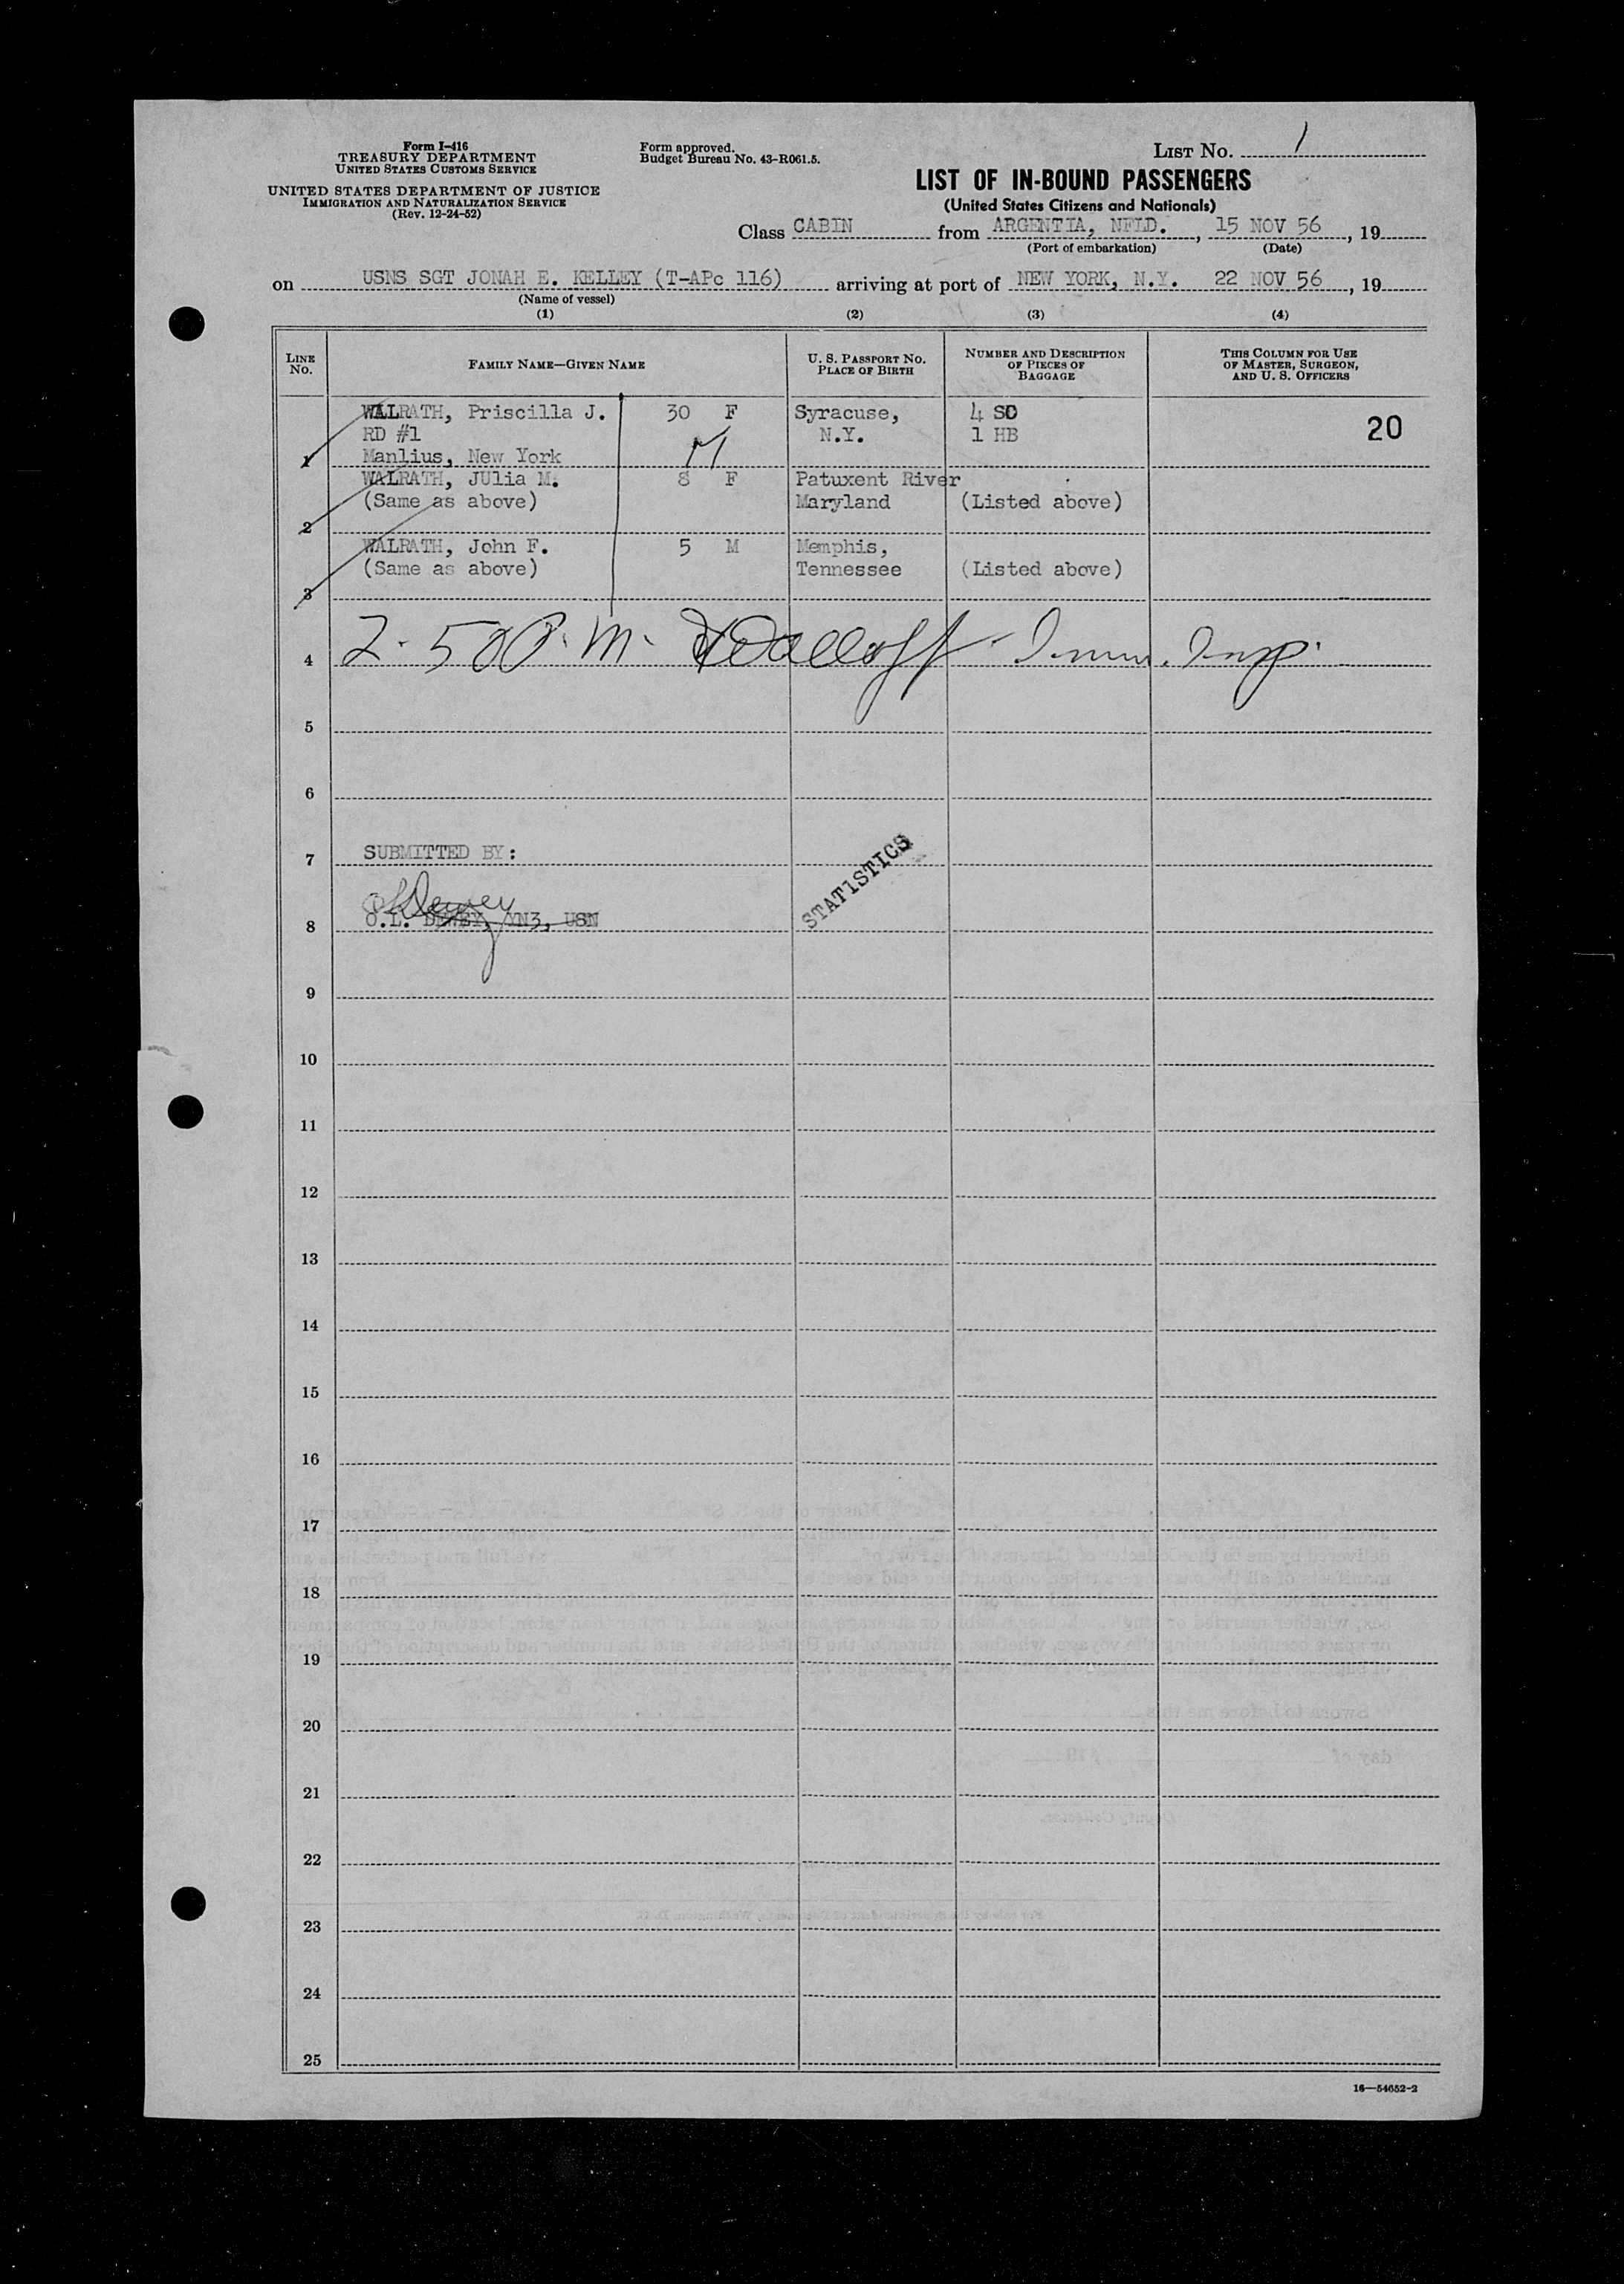 Form I-416
TREASURY DEPARTMENT
UNITED STATES CUSTOMS SERVICE
UNITED STATES DEPARTMENT OF JUSTICE
IMMIGRATION AND NATURALIZATION SERVICE
(Rev. 12-24-52)
Form approved.
Budget Bureau No. 43-R061.5.
LIST No. 1
LIST OF IN-BOUND PASSENGERS
(United States Citizens and Nationals)
Class CABIN from ARGENTIA, NFLD., 15 NOV 56, 19
(Port of embarkation) (Date)
on USNS SGT JONAH E. KELLEY (T-APc 116) arriving at port of NEW YORK, N.Y. 22 NOV 56, 19
(Name of vessel)
(1) (2) (3) (4)
LINE No. FAMILY NAME—GIVEN NAME U. S. PASSPORT NO. PLACE OF BIRTH NUMBER AND DESCRIPTION OF PIECES OF BAGGAGE THIS COLUMN FOR USE OF MASTER, SURGEON, AND U. S. OFFICERS
WALRATH, Priscilla J. 30 F Syracuse, 4 SD 20
RD #1 M N.Y. 1 HB
1 Manlius, New York
WALRATH, JUlia M. 8 F Patuxent River
(Same as above) Maryland (Listed above)
2
WALRATH, John F. 5 M Memphis,
(Same as above) Tennessee (Listed above)
3
4 2-5 P.M. Imm. Insp.
5
6
7 SUBMITTED BY:
STATISTICS
OLDewey
8 O.L. DEWEY, YN3, USN
9
10
11
12
13
14
15
16
17
18
19
20
21
22
23
24
25
16—54652-2